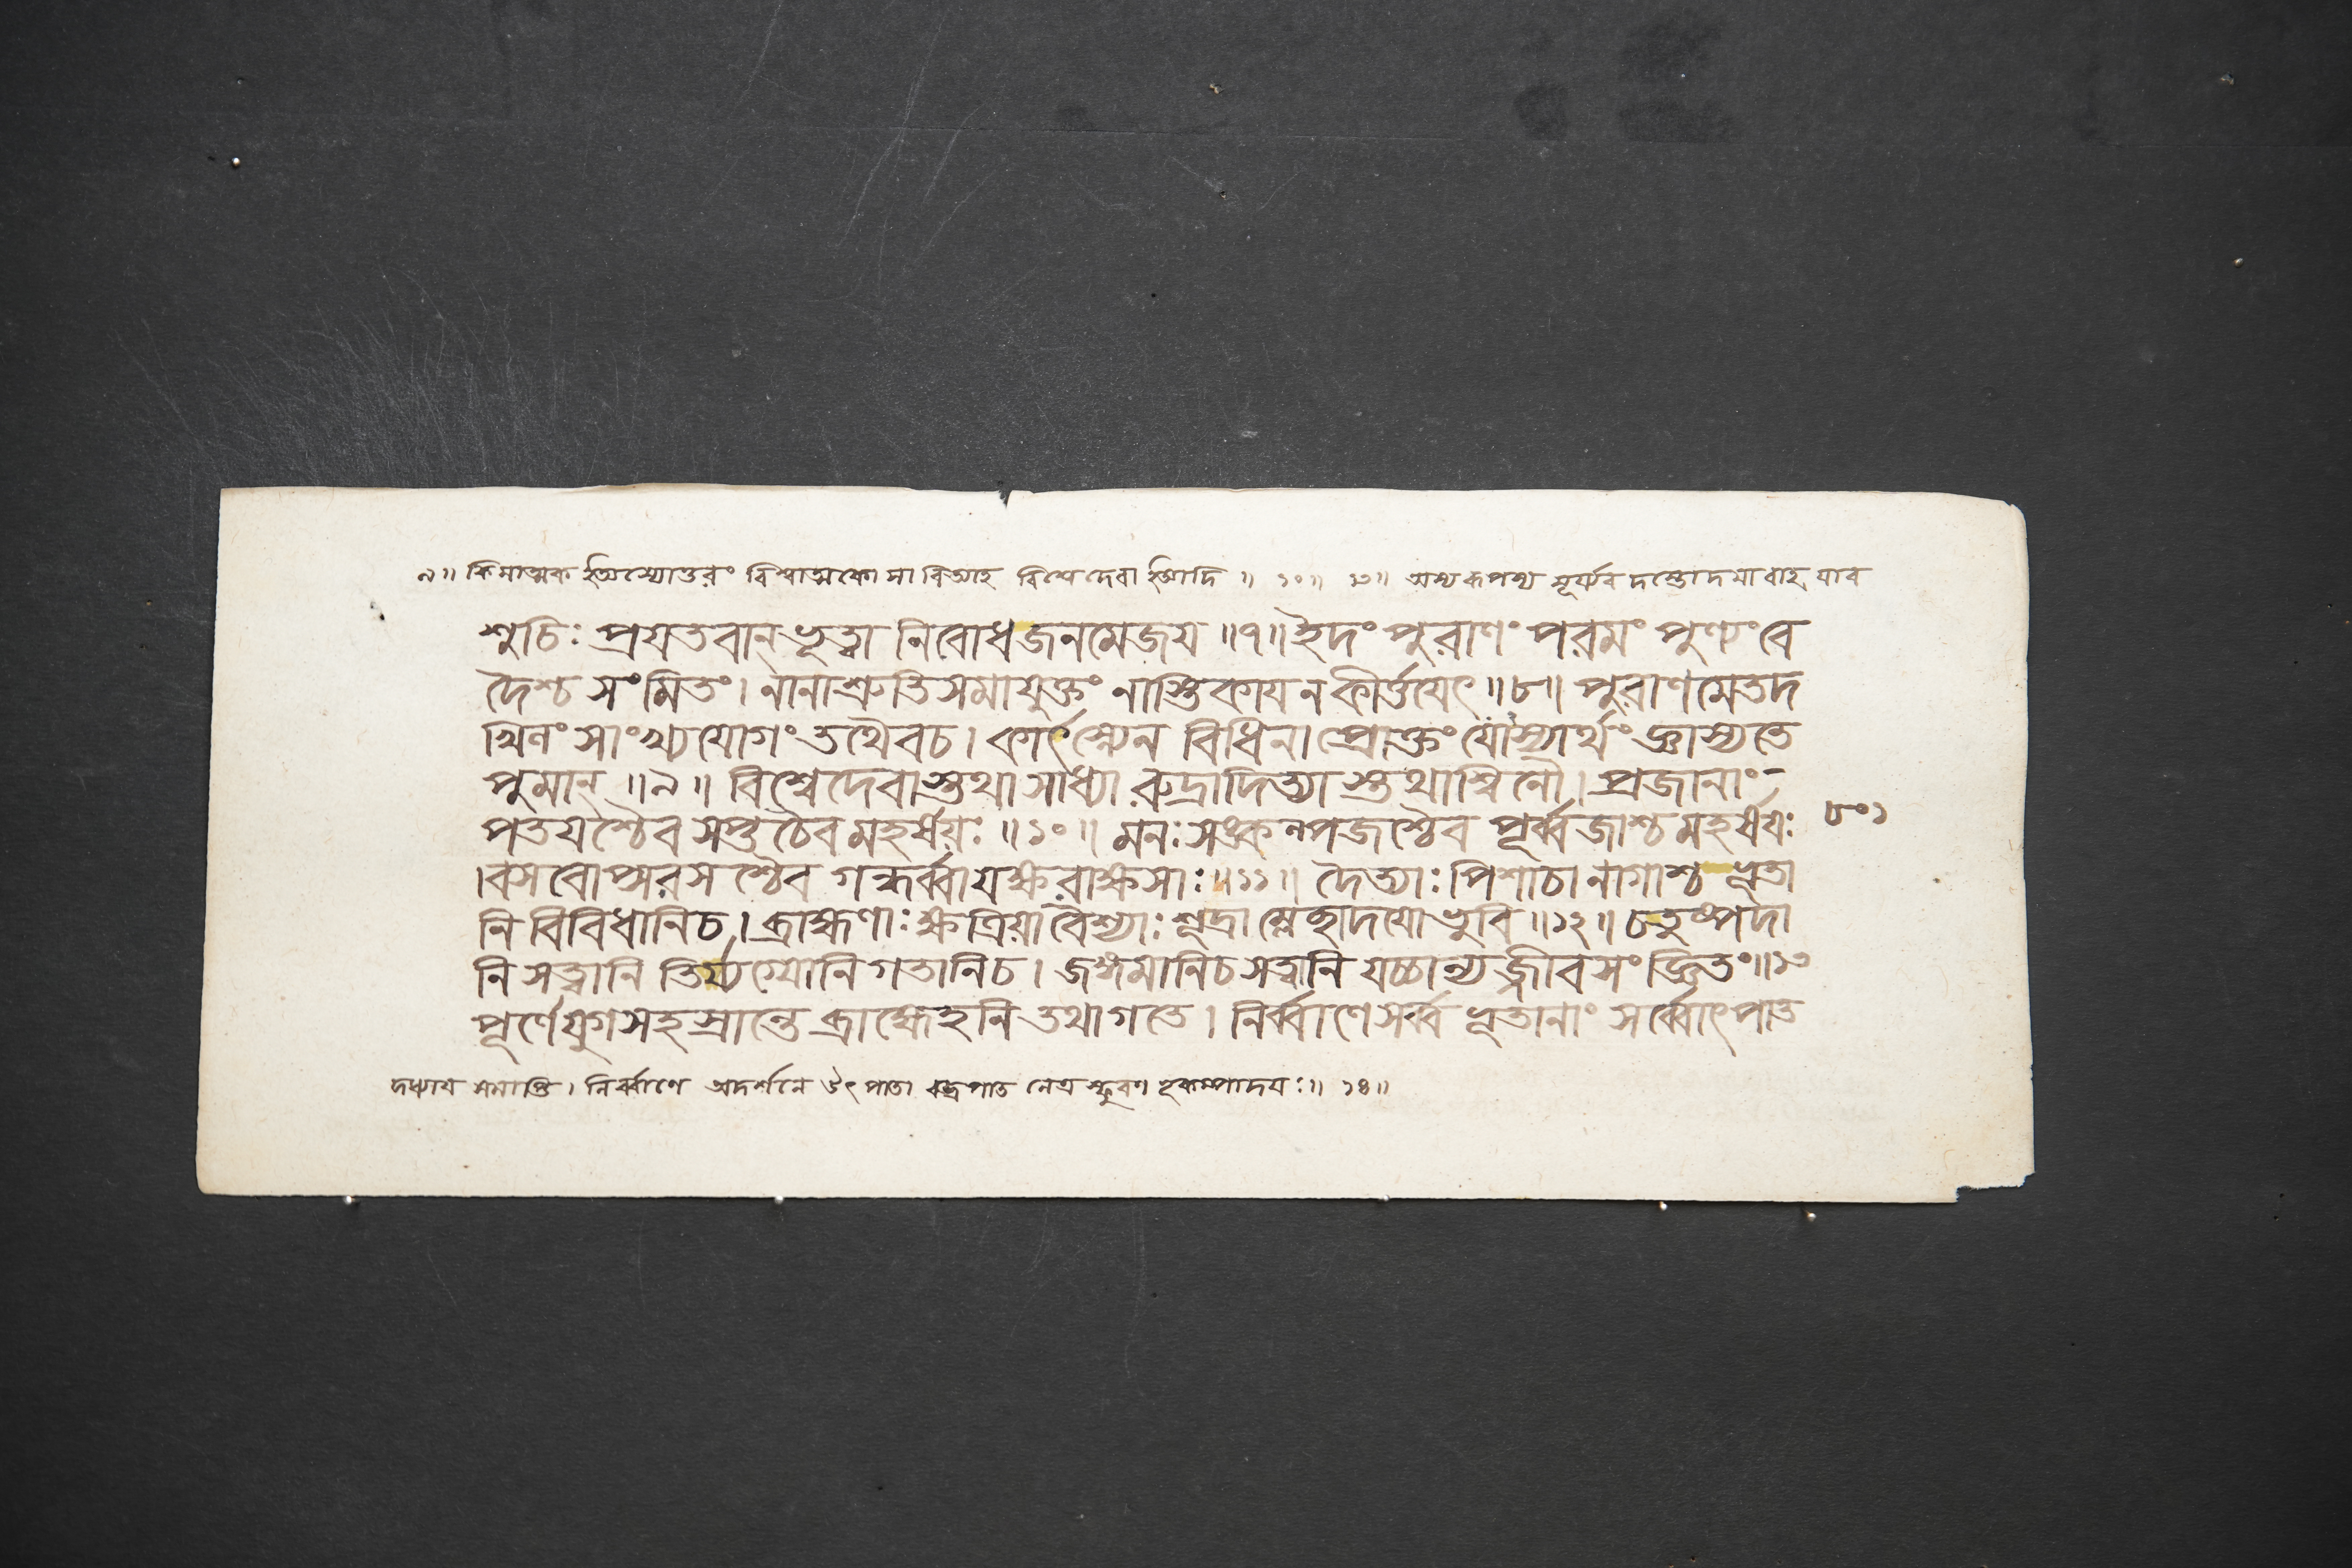 ৯॥ কিমাত্মক ইত্যস্যোত্তরং বিশ্বাত্মকো বিশ্বেদেবা ইত্যাদি ॥ ১০॥ ১৩॥
শুচিঃ প্রযতবান্ ভূত্বা নিবোধ জনমেজয ॥৭॥ ইদং পুরাণং পরমং পুণ্যং বে
দৈশ্চ সংমিতং। নানাশ্রুতিসমাযুক্তং নাস্তিকায ন কীর্ত্তযেৎ ॥৮॥ পুরাণমেতদ
খিলং সাংখ্যযোগং তথৈবচ। কার্ৎস্ন্যেন বিধিনা প্রোক্তং যোস্যার্থং জ্ঞাস্যতে
পুমান্ ॥৯॥ বিশ্বেদেবাস্তথা সাধ্যা রুদ্রাদিত্যাস্তথাশ্বিনৌ। প্রজানাং-
পতযশ্চৈব সপ্তচৈব মহর্ষয়ঃ ॥১০॥ মনঃসঙ্কল্পজশ্চৈব পূর্ব্বজাশ্চ মহর্ষযঃ
৮০১
।বসবোপ্সরসশ্চৈব গন্ধর্ব্বা যক্ষরাক্ষসাঃ॥১১॥ দৈত্যাঃ পিশাচা নাগাশ্চ ভূতা
নি বিবিধানিচ। ব্রাহ্মণাঃ ক্ষত্রিয়া বৈশ্যাঃ শূদ্রা ম্লেচ্ছাদযো ভুবি ॥১২॥ চতুষ্পদা
নি সত্ত্বানি তির্য্যগ্যোনি গতানিচ। জঙ্গমানিচ সত্ত্বানি যচ্চান্যজ্জীবসংজ্ঞিতং॥১৩
পূর্ণে যুগসহস্রান্তে ব্রাহ্মেহনি তথাগতে। নির্ব্বাণে সর্ব্ব ভূতানাং সর্ব্বোৎপাত
নির্ব্বাণে অদর্শনে উৎপাতা নেত্রস্ফুরণ ॥ ১৪॥